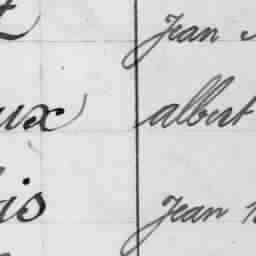 Jean
ux albert
is Jean